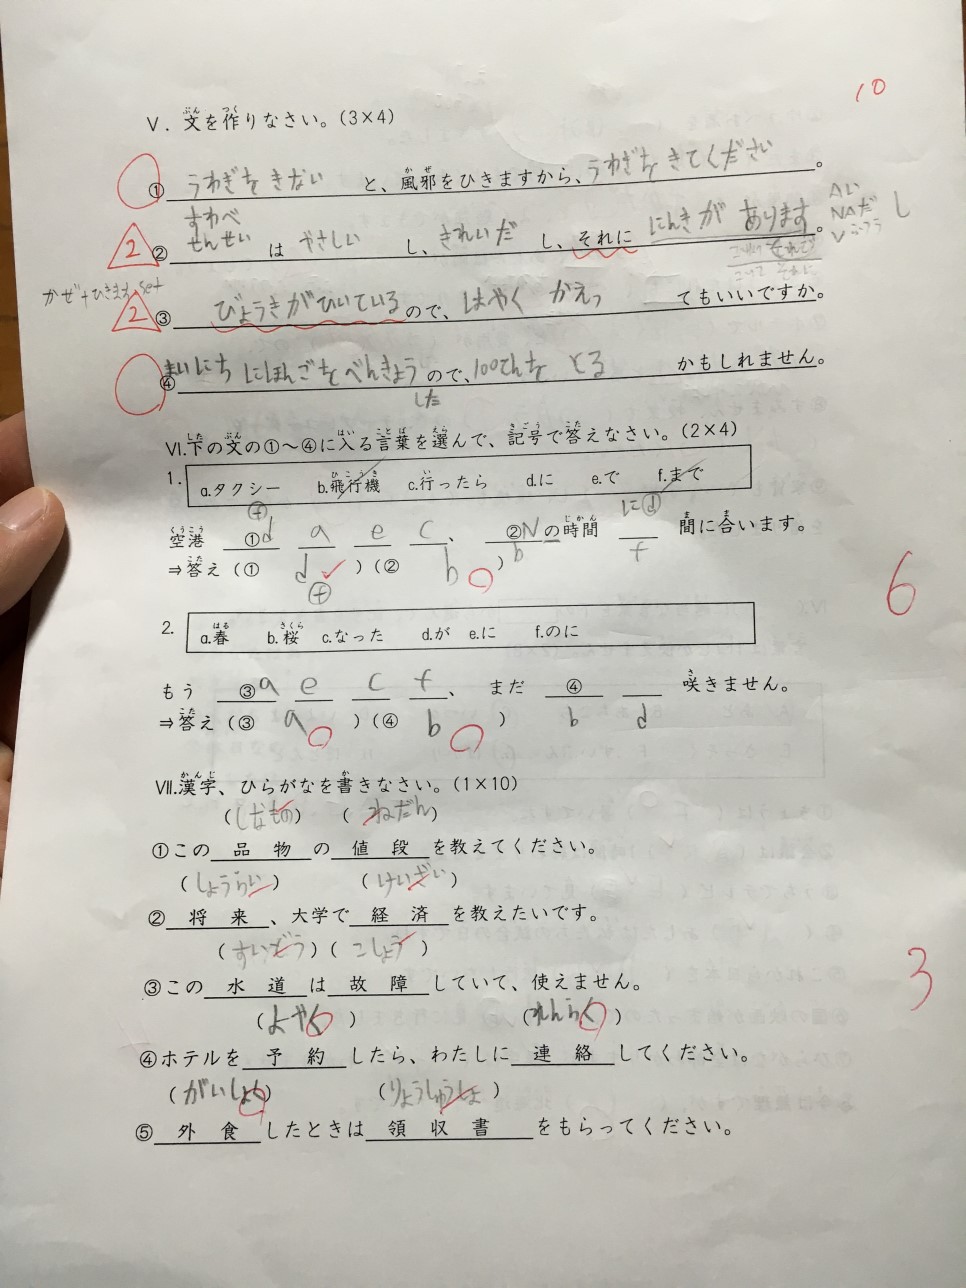 10
Ⅴ. 文を作りなさい。(3×4)
① うわぎを きない と、風邪をひきますから、うわぎを きてください 。
すわべ
② せんせい は やさしい し、きれいだ し、それに にんきが あります 。
2
Aい
NAだ
し
かぜ+ひきます
③ びょうきがひいている ので、はやく かえっ てもいいですか。
2
④ まいにち にほんごを べんきょう ので、100てんを とる かもしれません。
した
Ⅵ.下の文の①～④に入る言葉を選んで、記号で答えなさい。(2×4)
1. a.タクシー b.飛行機 c.行ったら d.に e.で f.まで
f にd
空港 ①d a e c 、 ②N の時間 間に合います。
b f
⇒答え (① d ) (② b )
f
6
2. a.春 b.桜 c.なった d.が e.に f.のに
もう ③a e c f 、 まだ ④ 咲きません。
⇒答え (③ a ) (④ b ) b d
Ⅶ.漢字、ひらがなを書きなさい。(1×10)
(しなもの) (ねだん)
①この 品 物 の 値 段 を教えてください。
(しょうらい) (けいざい)
② 将 来 、大学で 経 済 を教えたいです。
(すいどう) (こしょう)
③この 水 道 は 故 障 していて、使えません。
3
(よやく) (れんらく)
④ホテルを 予 約 したら、わたしに 連 絡 してください。
(がいしょく) (りょうしゅうしょ)
⑤ 外 食 したときは 領 収 書 をもらってください。